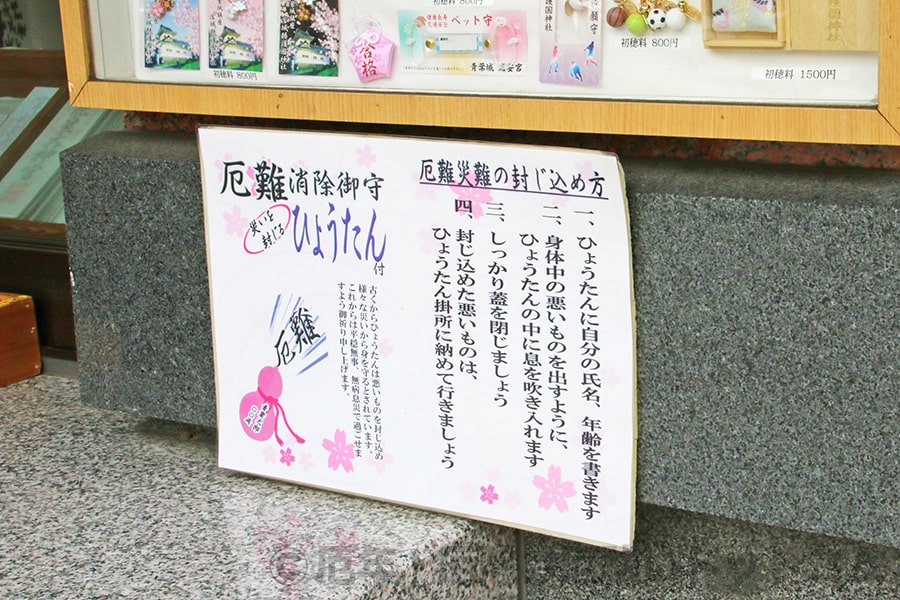 初穂料 800円
合格
健康長寿
交通安全
ペット守
青葉城
護国神社
初穂料 800円
初穂料 800円
初穂料 1500円
厄難消除御守
災いを
封じる
ひょうたん付
厄難
古くからひょうたんは悪いものを封じ込め
様々な災いから身を守るとされています。
これからは平穏無事、無病息災で過ごせま
すよう御祈り申し上げます。
厄難災難の封じ込め方
一、ひょうたんに自分の氏名、年齢を書きます
二、身体中の悪いものを出すように、
ひょうたんの中に息を吹き入れます
三、しっかり蓋を閉じましょう
四、封じ込めた悪いものは、
ひょうたん掛所に納めて行きましょう